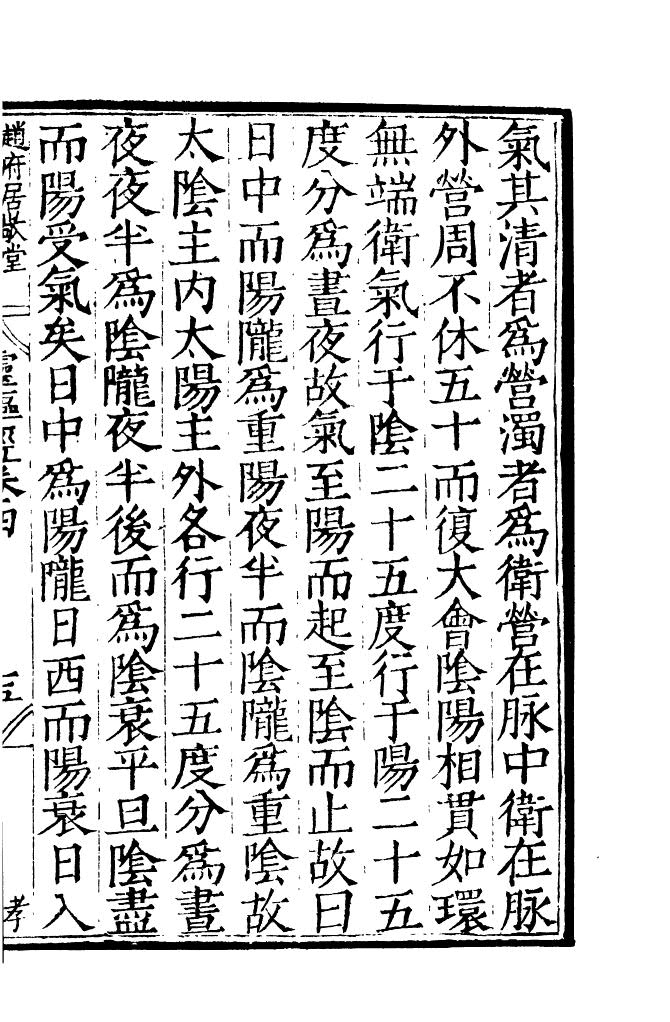 氣其清者爲營濁者爲衛營在脉中衛在脉
外營周不休五十而復大會陰陽相貫如環
無端衛氣行于陰二十五度行于陽二十五
度分爲晝夜故氣至陽而起至陰而止故曰
日中而陽隴爲重陽夜半而陰隴爲重陰故
太陰主内太陽主外各行二十五度分爲晝
夜夜半爲陰隴夜半後而爲陰衰平旦陰盡
而陽受氣矣日中爲陽隴日西而陽衰日入
趙府居敬堂 靈樞經卷四 五 孝